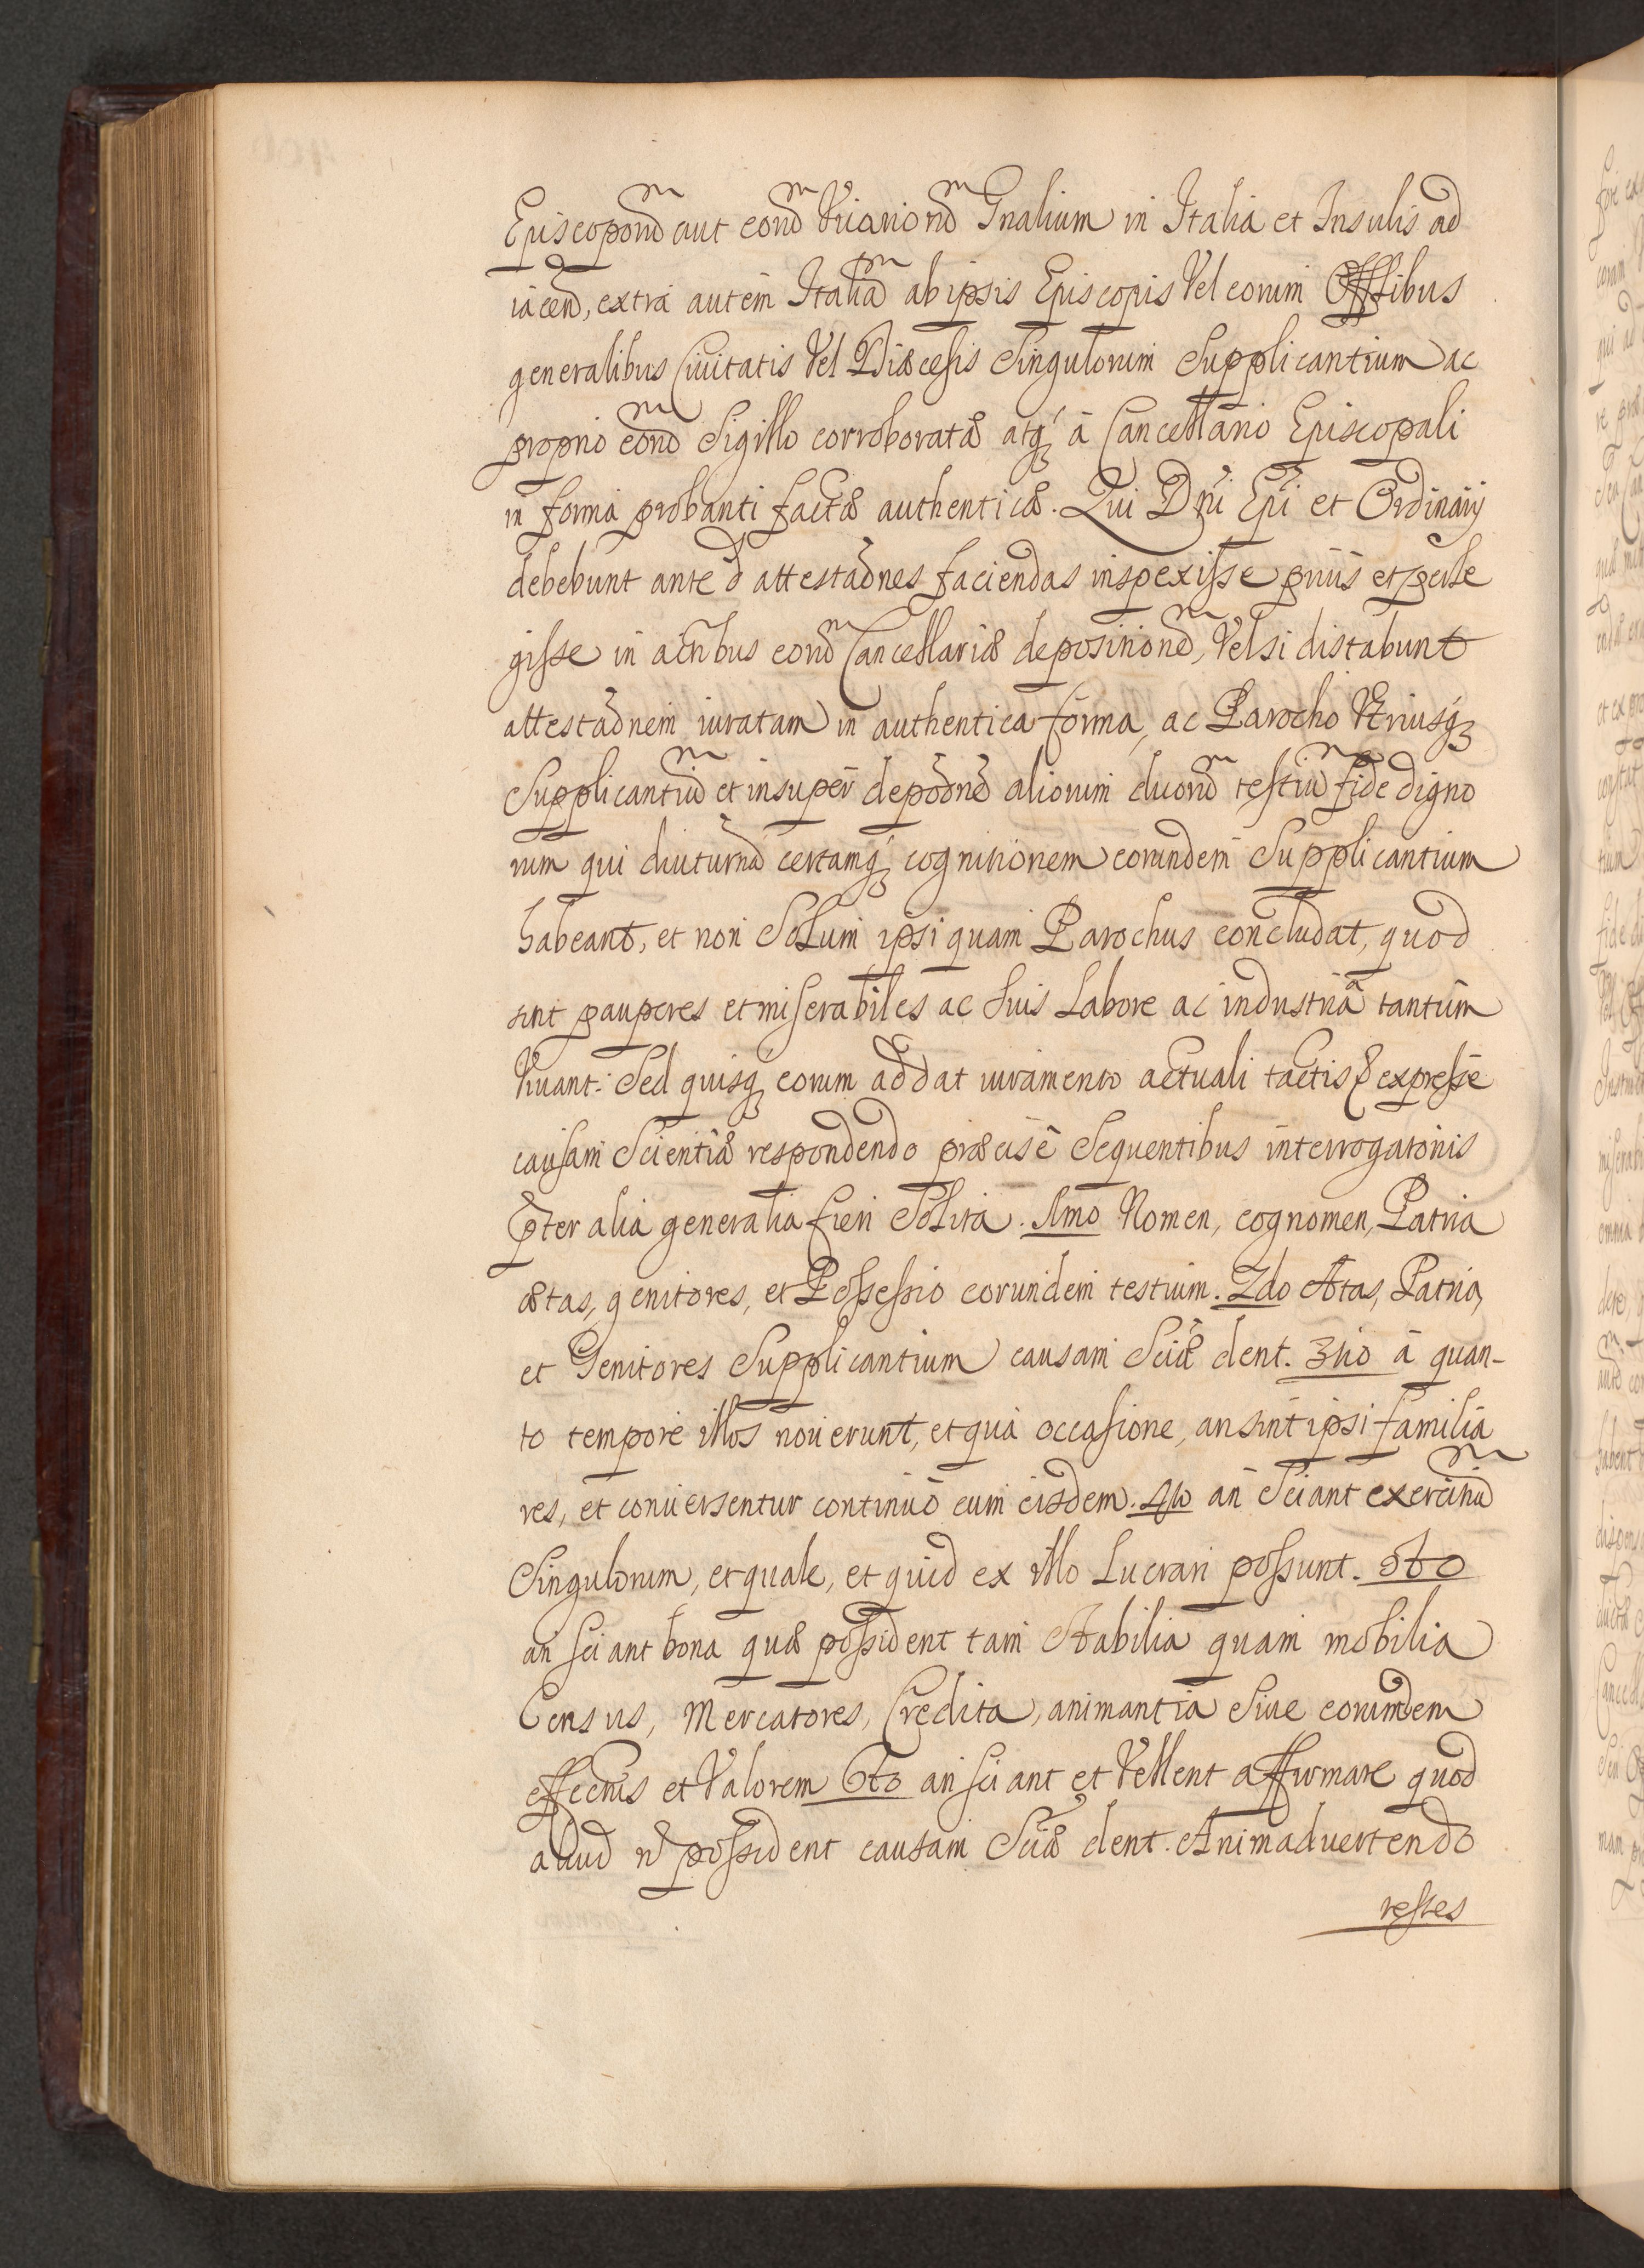 Episcopor̃ aut eor̃ Vicarior̃ Gnalium in Italia et Insulis ad
iacen̄, extra autem Italiã ab ipsis Episcopis Vel eorum Offlibus
generalibus Ciuitatis Vel Diœcesis Singulorum Supplicantium ac
proprio eor̃ Sigillo corroboratæ atq́ꝫ à Cancellario Episcopali
in forma probanti factæ authenticæ. Qui Dn̄i Ep̄i et Ordinarij
debebunt ante d̄ attestāōnes faciendas inspexisse prius et perle
gisse in actibus eor̃ Cancellariæ depositionē, Vel si distabunt
attestāōnem iuratam in authentica forma, ac Parocho Vtriusq́ꝫ
Supplicantiũ et insuper depōōnē aliorum duor̃ testiũ fide digno
rum qui diuturnã certamq́ꝫ cognitionem eorundem Supplicantium
habeant, et non Solum ipsi quam Parochus concludat, quod
sint pauperes et miserabiles ac suis Labore ac industriâ tantùm
Viuant. Sed quisq́ꝫ eorum addat iuramento actuali tactis & expressè
causam Scientiæ respondendo præcisè Sequentibus interrogatorijs
p̄ter alia generalia fieri Solita. Pmo Nomen, cognomen, Patria
ætas, genitores, et Possessio eorundem testium. 2do Ætas, Patria,
et Genitores Supplicantium causam Sciæ dent. 3tio à quan-
to tempore illos nouerunt, et qua occasione, an sint ipsi familia
res, et conuersentur continuò cum eisdem. 4to an Sciant exercitiũ
Singulorum, et quale, et quid ex illo Lucrari possunt. 5to
an sciant bona quæ possident tam Stabilia quam mobilia
Census, Mercatores, Credita, animantia Siue eorumdem
effectus et Valorem 6to an sciant et Vellent affirmare quod
aliud n̄ possident causam Sciæ dent. Animaduertendo
testes